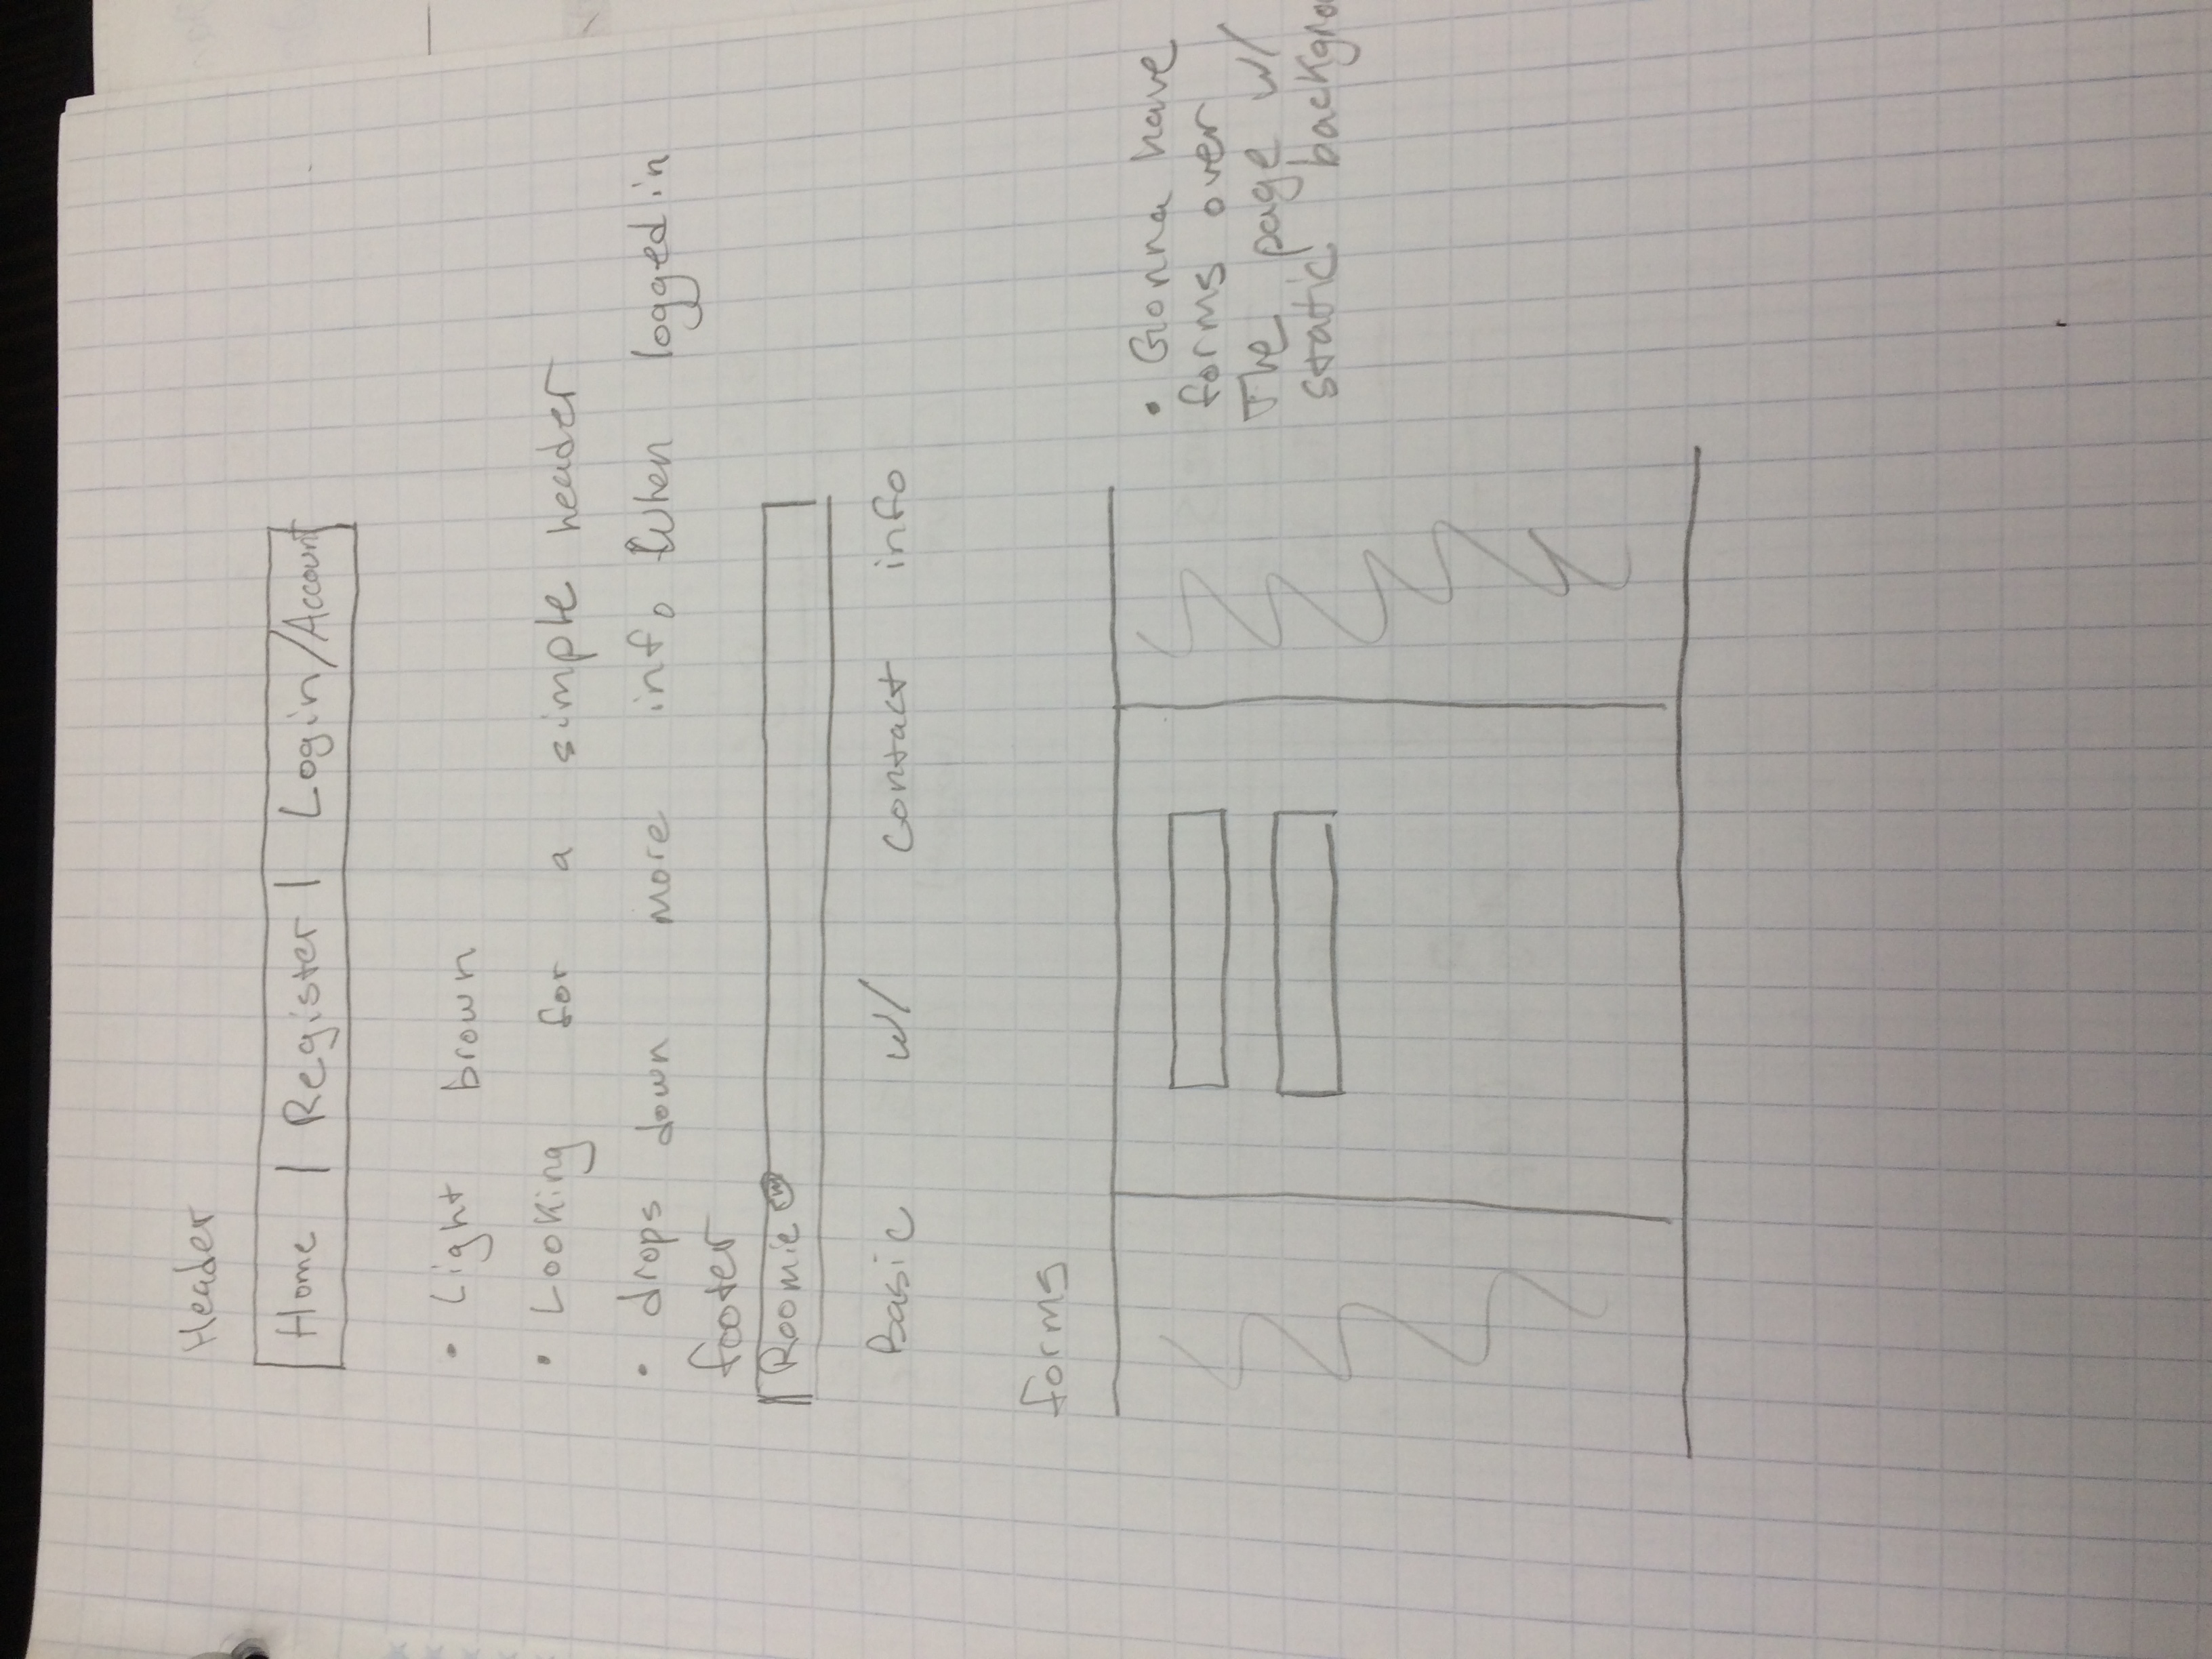 Header
Home | Register | Login/Account
• Light brown
• Looking for a simple header
• drops down more info when logged in
footer
Roomie
Basic w/ contact info
forms
• Gonna have
forms over
The page w/
static